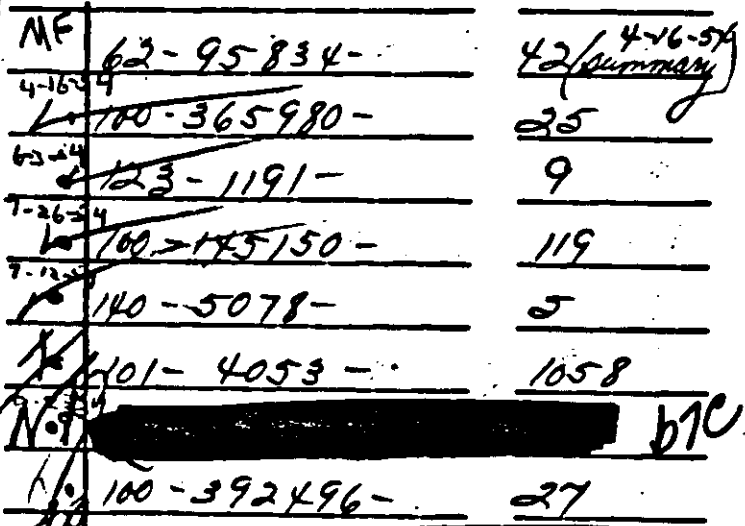 MF 62-95834- 42/summary 4-16-54
4-16-54 100-365980- 25
6-3-54 123-1191- 9
7-26-54 100-145150- 119
140-5078- 5
101-4053- 1058
b7C
100-392496- 27